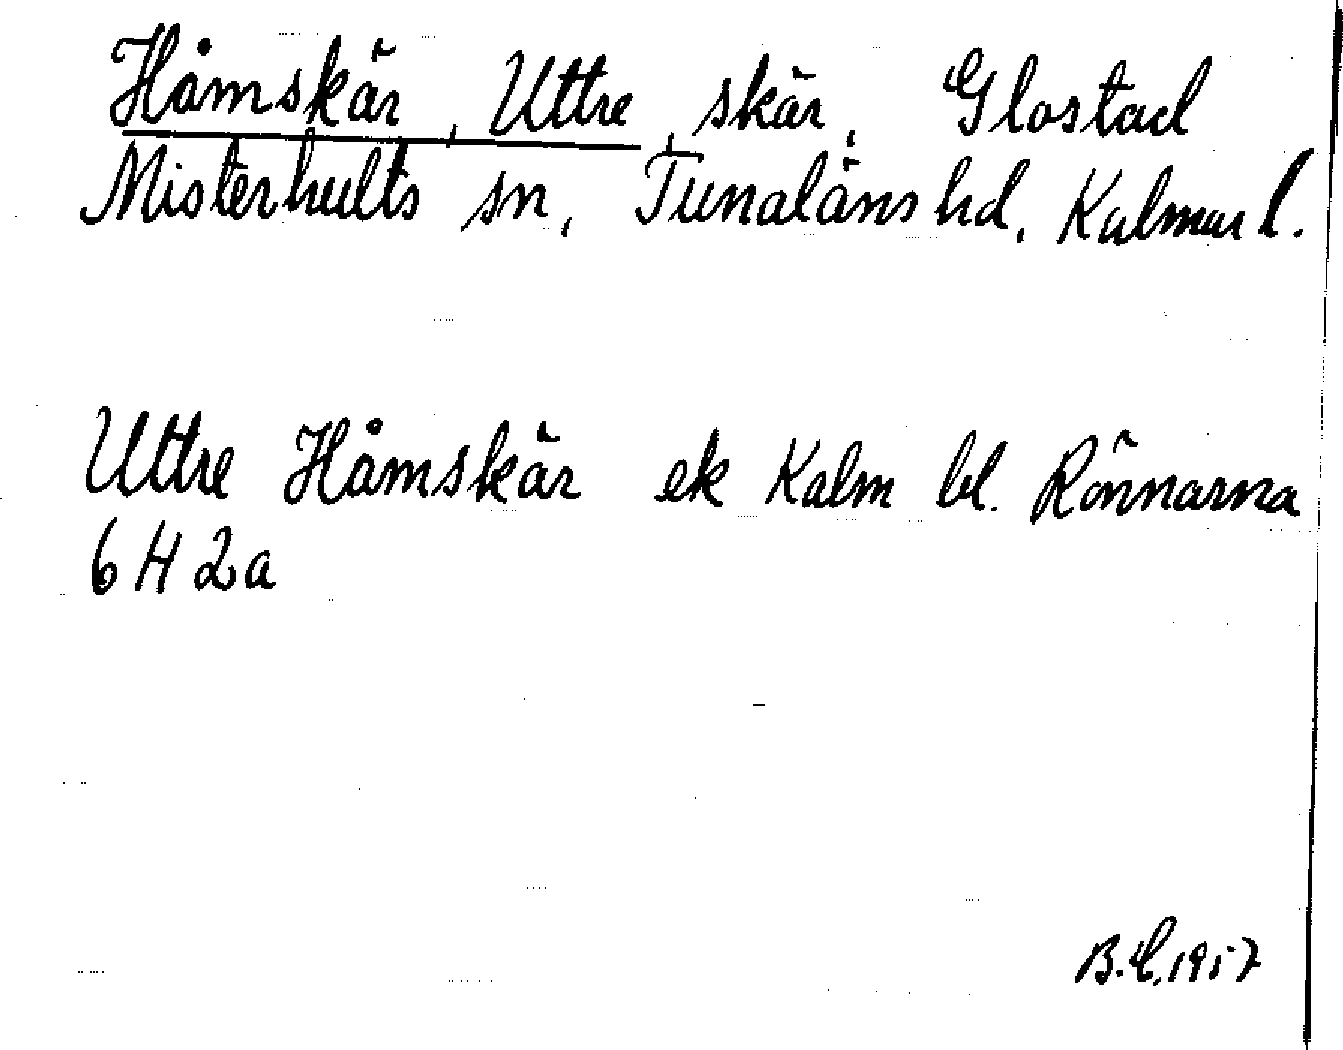 Håmskär, Uttre, skär, Glostad
Misterhults sn, Tunaläns hd, Kalmar l.
Uttre Håmskär ek Kalm bl. Rönnarna
6 H 2a
B.E. 1957